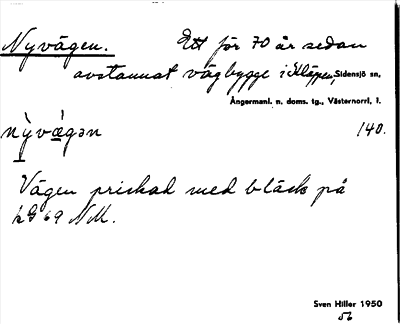 Nyvägen. Ett för 70 år sedan
avstannat vägbygge i Kläppen, Sidensjö sn,
Ångermanl. n. doms. tg., Västernorrl. l.
nỳvǽgən 140.
Vägen prickad med bläck på
kG 69 NM.
Sven Hiller 1950
56